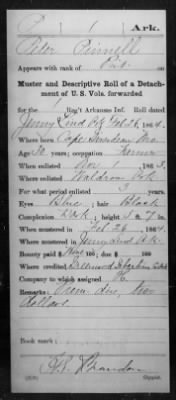 P 1 Ark.
Peter Pinnell
Appears with rank of Pvt.
Muster and Descriptive Roll of a Detach-
ment of U. S. Vols. forwarded
for the Reg't Arkansas Inf. Roll dated
Jenny Lind Ark Feb 26, 1864.
Where born Cape Girardeau Mo
Age y'rs; occupation Farmer
When enlisted Nov 1, 1863.
Where enlisted Waldron Ark
For what period enlisted 3 years.
Eyes Blue; hair Black
Complexion Dark; height ft. 7 in.
When mustered in Feb 26, 1864.
Where mustered in Jenny Lind Ark.
Bounty paid $ None 100; due $ 100
Where credited Greenwood Sebastian
Company to which assigned
Remarks: Prem due, two
dollars
Book mark:
Copyist.